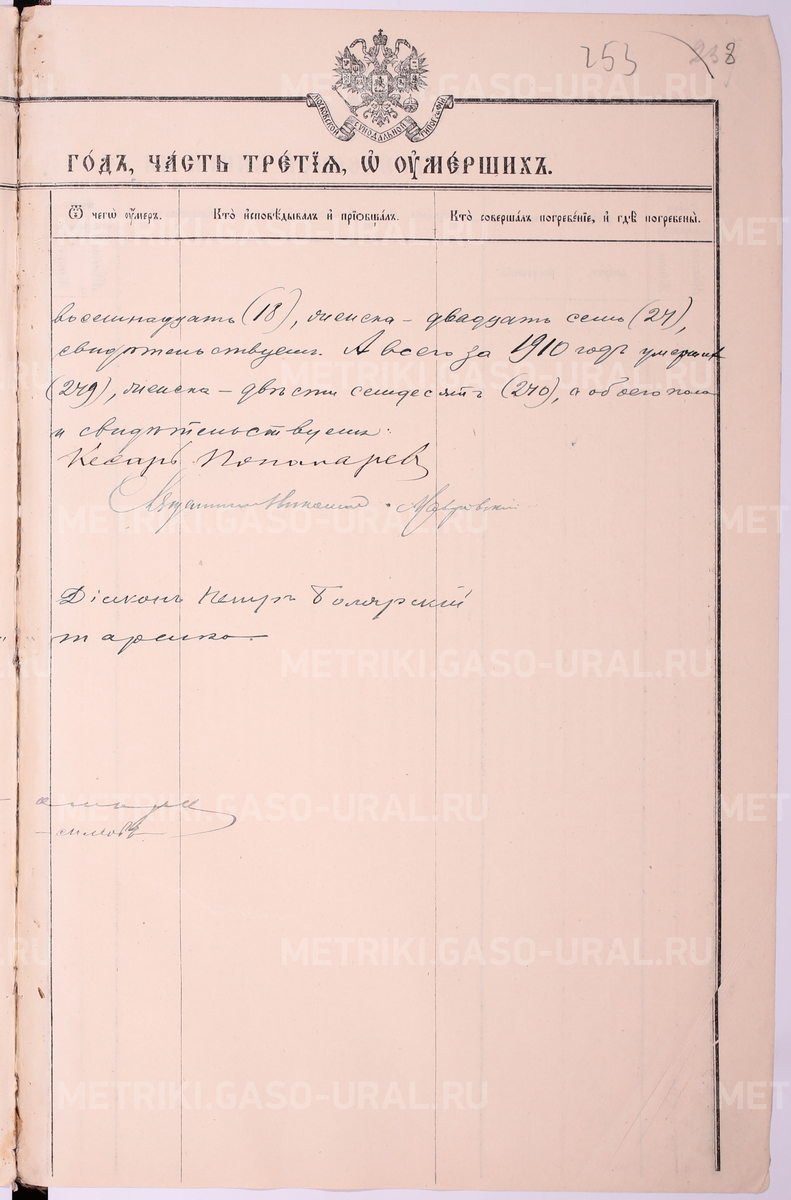 253 238
МОСКОВСКОЙ СѴНОДАЛЬНОЙ ТИПОГРАФІИ
ГО́ДЪ, ЧА́СТЬ ТРЕ́ТЇѦ, Ѡ҆ ОУ҆МЕ́РШИХЪ.
Ѿ чегѡ̀ оу҆́меръ. Кто̀ и҆сповѣ́дывалъ и҆ прїѡбща́лъ. Кто̀ соверша́лъ погребе́нїе, и҆ гдѣ̀ погребены̀.
восемнадцать (18), женска – двадцать семь (27),
свидѣтельствуемъ. А всего за 1910 годъ умершихъ
(279), женска – двѣсти семдесятъ (270), а обоего пола
и свидѣтельствуемъ:
Кесарь Пономаревъ
Діаконъ Петръ Болярскій
METRIKI.GASO-URAL.RU